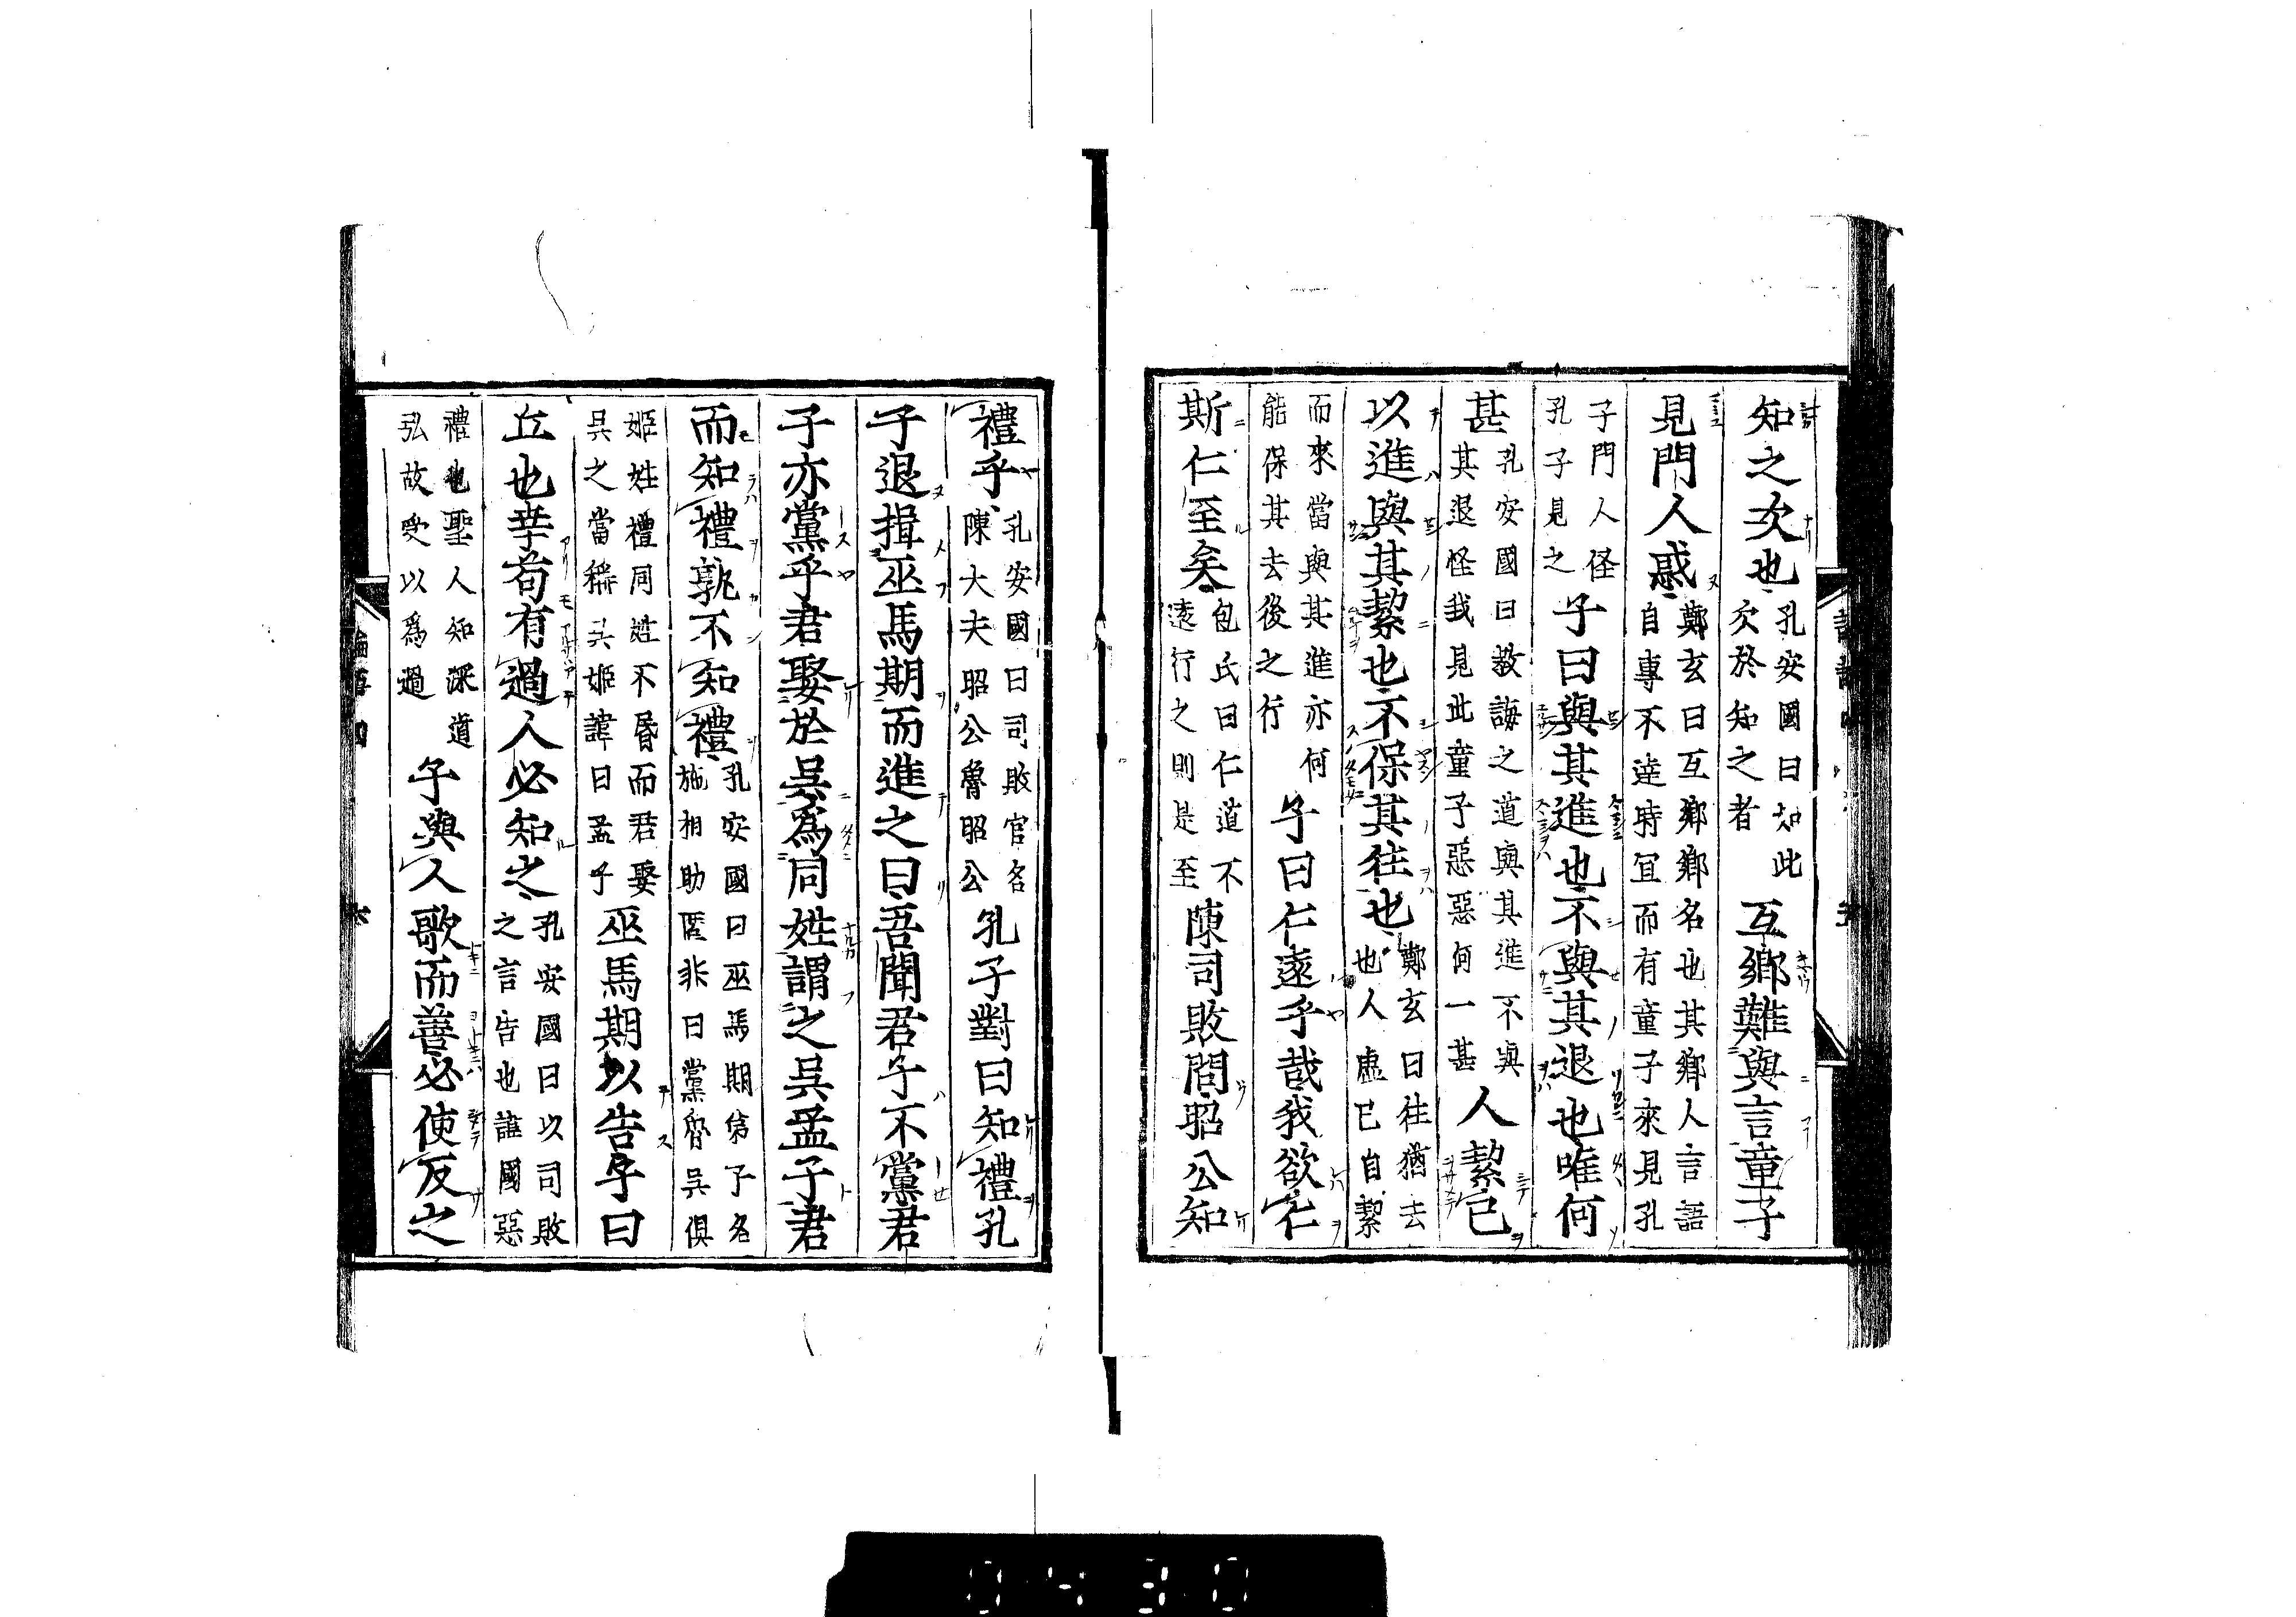 知之次也孔安國曰知此次於知之者互鄉難與言童子
見門人惑鄭玄曰互鄉鄉名也其鄉人言語自專不達時宜而有童子來見孔
子門人怪孔子見之子曰與其進也不與其退也唯何
甚孔安國曰教誨之道與其進不與其退怪我見此童子惡惡何一甚人絜已
以進與其絜也不保其往也鄭玄曰往猶去也人虛已自絜
而來當與其進亦何能保其去後之行子曰仁遠乎哉我欲仁
斯仁至矣包氏曰仁道不遠行之則是至陳司敗問昭公知
禮乎孔安國曰司敗官名陳大夫昭公魯昭公孔子對曰知禮孔
子退揖巫馬期而進之曰吾聞君子不黨君
子亦黨乎君娶於吳為同姓謂之吳孟子君
而知禮孰不知禮孔安國曰巫馬期弟子名施相助匿非曰黨魯吳俱
姬姓禮同姓不昏而君娶吳之當稱吳姬諱曰孟子巫馬期以告子曰
丘也幸苟有過人必知之孔安國曰以司敗之言告也諱國惡
禮也聖人知深道弘故受以為過子與人歌而善必使反之
0430